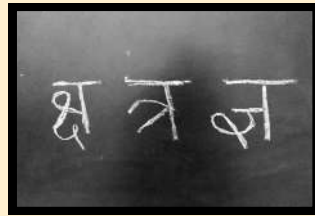 क्ष त्र ज्ञ